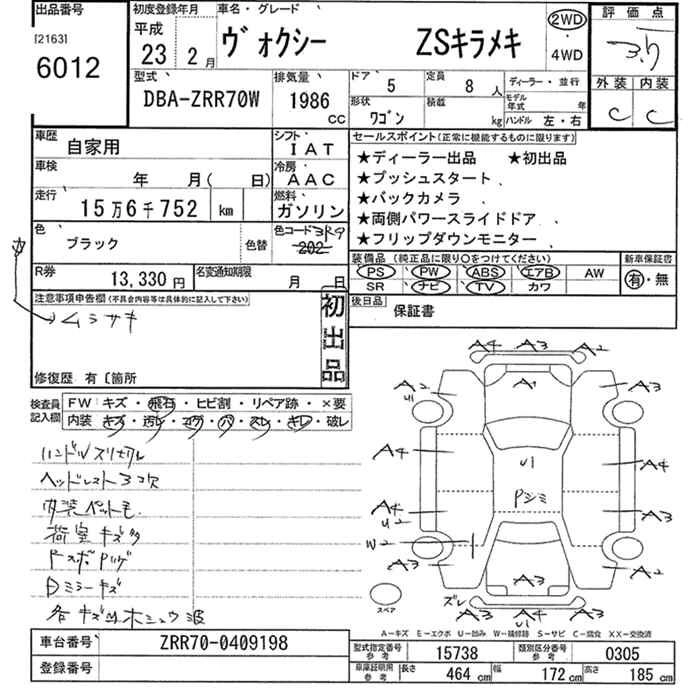 出品番号 初度登録年月 車名・グレード 評価点
[2163] 平成 ヴォクシー ZSキラメキ 2WD
6012 23年 2月 ・ 3.5
4WD
型式 排気量 ドア 5 定員 8人 ディーラー・並行 外装 内装
DBA-ZRR70W 1986 CC 形状 ワゴン 積載 kg モデル年式 年 C C
ハンドル 左・右
車歴 自家用 シフト IAT セールスポイント(正常に機能するものに限ります)
車検 年 月( 日) 冷房 AAC ★ディーラー出品 ★初出品
走行 15万6千752 km 燃料 ガソリン ★プッシュスタート、
★バックカメラ、
色 ブラック 色替 色コード 3R9 202 ★両側パワースライドドア、
★フリップダウンモニター、
R券 13,330円 名変通知期限 月 日 装備品(純正品に限り○をつけてください) 新車保証書
PS PW ABS エアB AW 有・無
SR ナビ TV カワ
注意事項申告欄(不具合内容等は具体的に記入して下さい) 初出品 後日品 保証書
ムラサキ
修復歴 有〔箇所
検査員記入欄 FW キズ・飛石・ヒビ割・リペア跡・×要
内装 キズ・汚レ・コゲ・穴・スレ・キレ・破レ
ハンドルスリキレ
ヘッドレスト3コ欠
内装ペット毛
荷室キズ多
Dミラーキズ
A4 A3 A2
A2 U1 A1 A3
A4 U1 A4
A4 U2 Pシミ A3
W2 A3 A3 A2
スペア ズレ A3 A4 U1 A3
A―キズ E―エクボ U―凹み W―補修跡 S―サビ C―腐食 XX―交換済
車台番号 ZRR70-0409198 型式指定番号 参考 15738 類別区分番号 参考 0305
登録番号 車庫証明用 参考 長さ 464 cm 幅 172 cm 高さ 185 cm